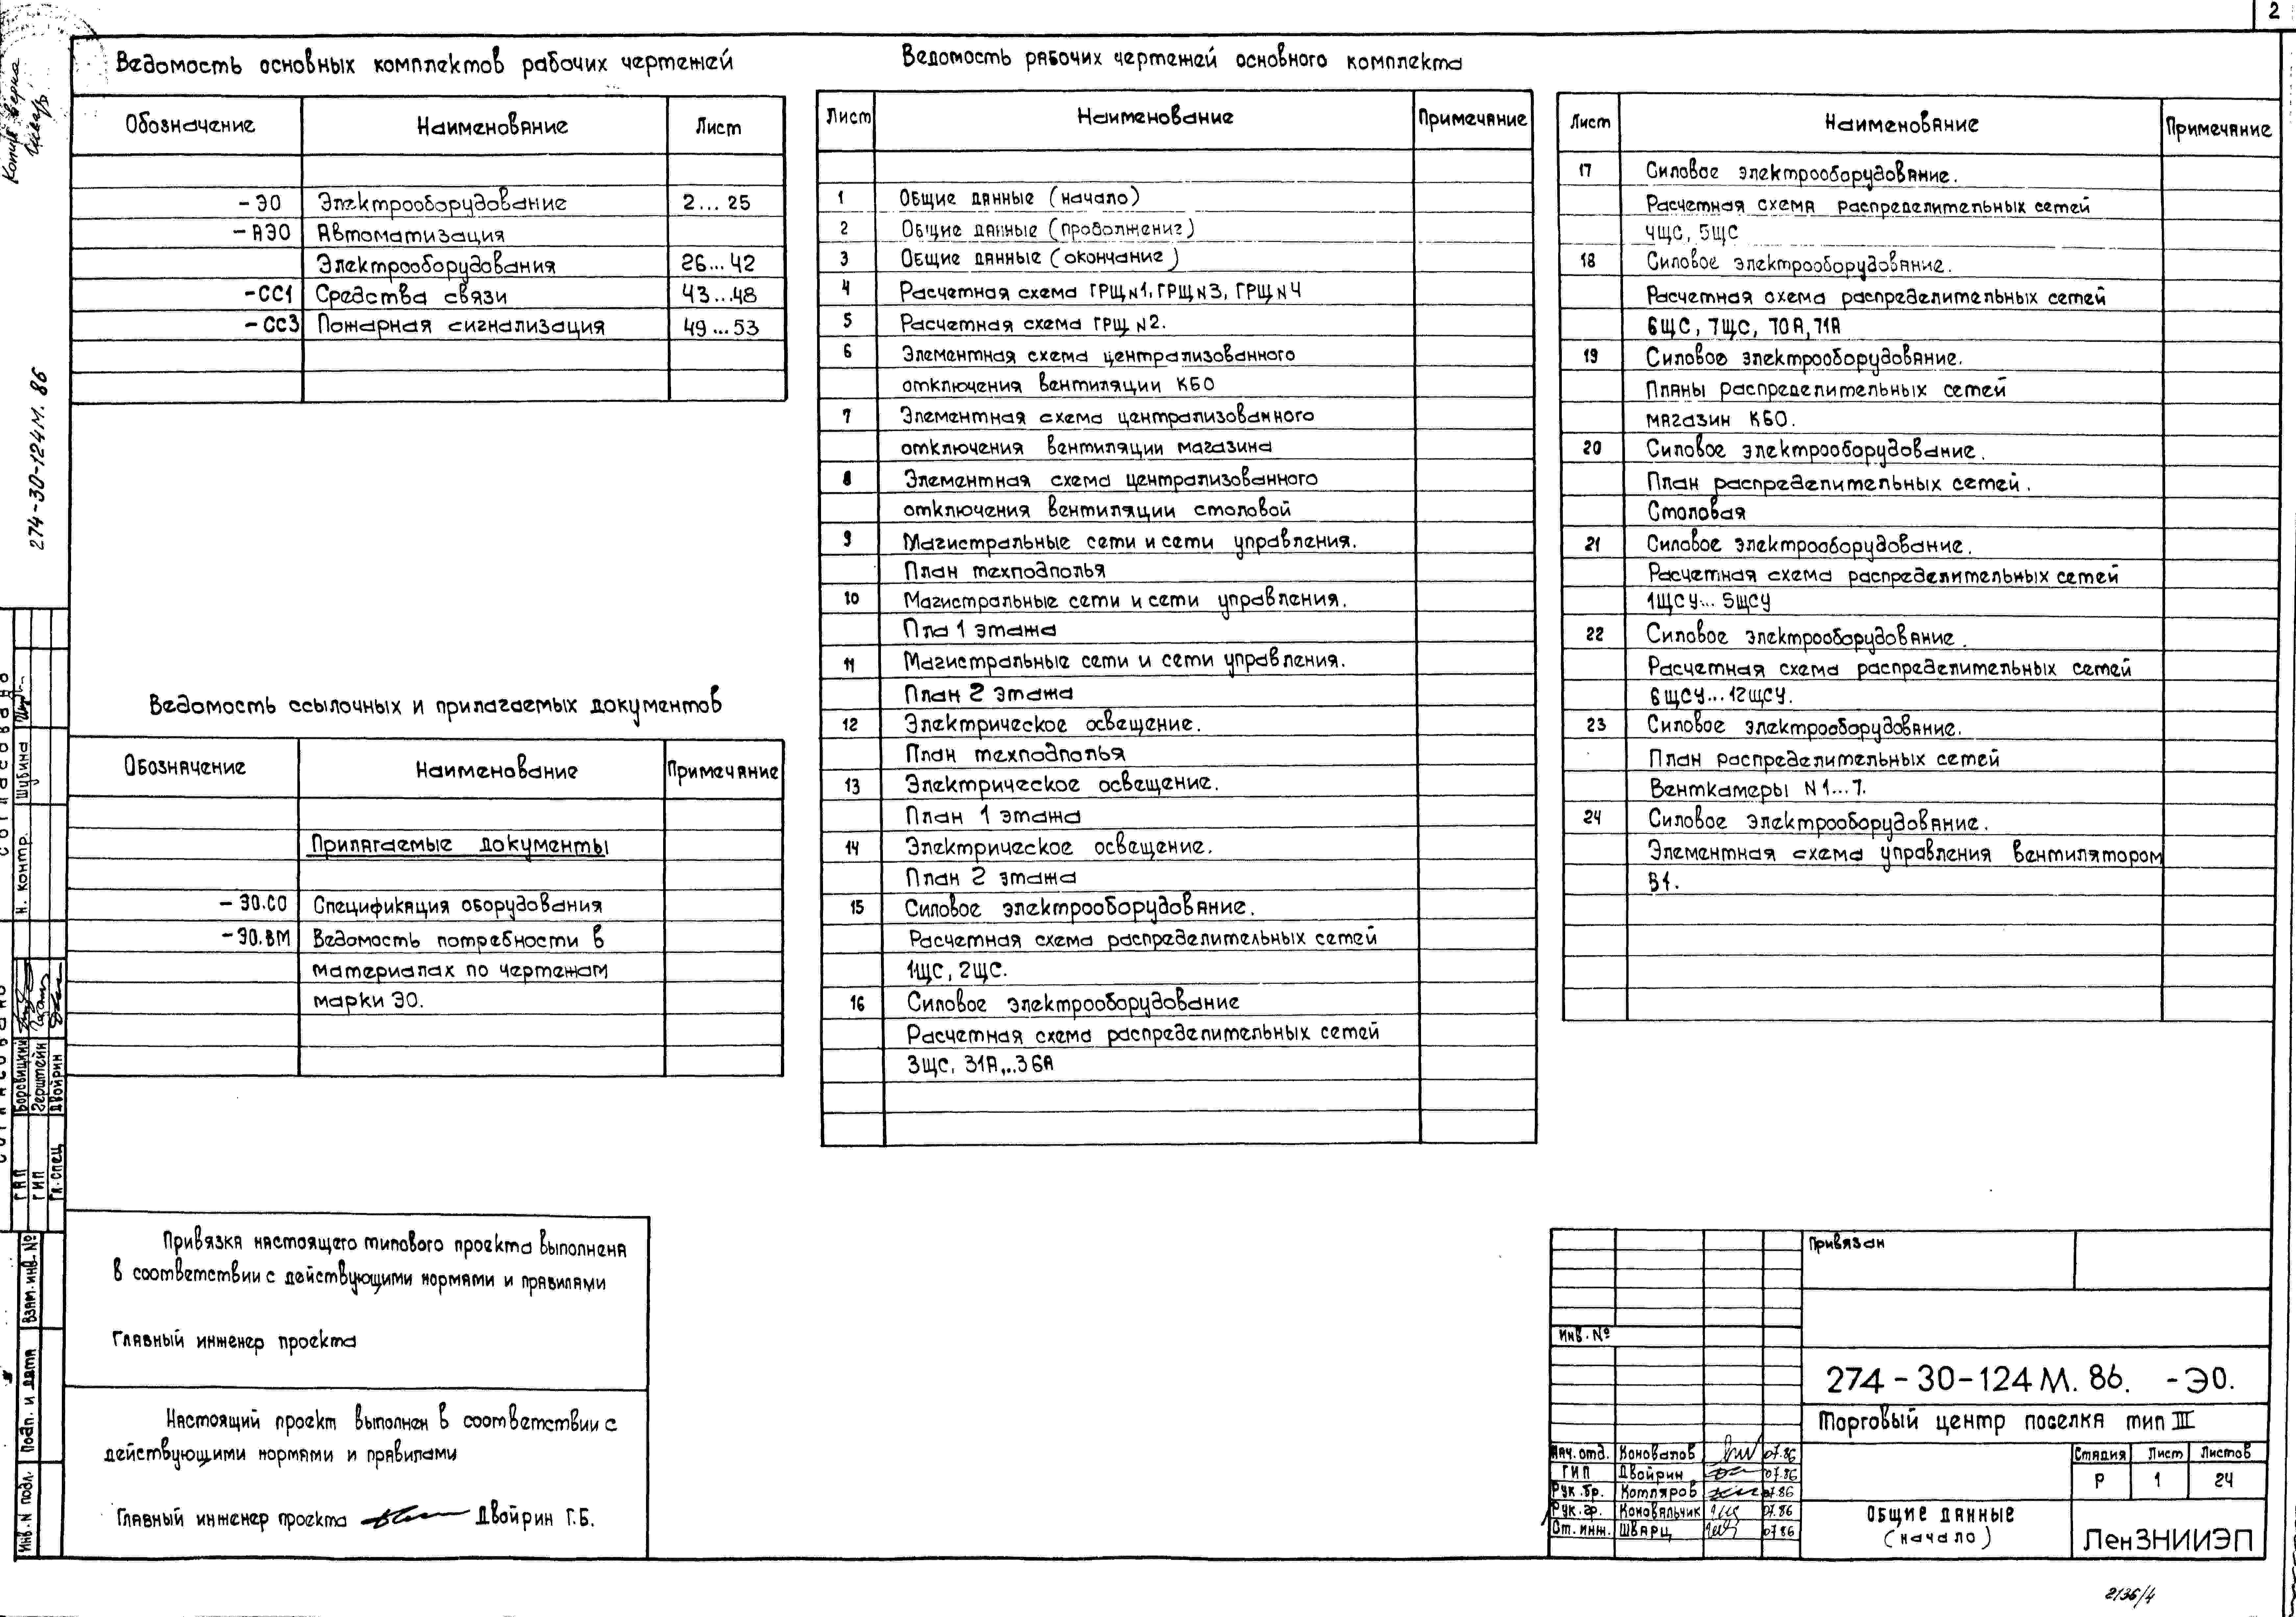 2
Копия верна
274-30-124М. 86
Ведомость основных комплектов рабочих чертежей
Обозначение Наименование Лист
-ЭО Электрооборудование 2...25
-АЭО Автоматизация
Электрооборудования 26...42
-СС1 Средства связи 43...48
-СС3 Пожарная сигнализация 49...53
Ведомость ссылочных и прилагаемых документов
Обозначение Наименование Примечание
Прилагаемые документы
-ЭО.СО Спецификация оборудования
-ЭО.ВМ Ведомость потребности в
материалах по чертежам
марки ЭО.
Привязка настоящего типового проекта выполнена
в соответствии с действующими нормами и правилами
Главный инженер проекта
Настоящий проект выполнен в соответствии с
действующими нормами и правилами
Главный инженер проекта Двойрин Г.Б.
Ведомость рабочих чертежей основного комплекта
Лист Наименование Примечание
1 Общие данные (начало)
2 Общие данные (продолжениг)
3 Общие данные (окончание)
4 Расчетная схема ГРЩ N1, ГРЩ N3, ГРЩ N4
5 Расчетная схема ГРЩ N2.
6 Элементная схема централизованного
отключения вентиляции КБО
7 Элементная схема централизованного
отключения вентиляции магазина
8 Элементная схема централизованного
отключения вентиляции столовой
9 Магистральные сети и сети управления.
План техподполья
10 Магистральные сети и сети управления.
Пла 1 этажа
11 Магистральные сети и сети управления.
План 2 этажа
12 Электрическое освещение.
План техподполья
13 Электрическое освещение.
План 1 этажа
14 Электрическое освещение.
План 2 этажа
15 Силовое электрооборудование.
Расчетная схема распределительных сетей
1ЩС, 2ЩС.
16 Силовое электрооборудование
Расчетная схема распределительных сетей
3ЩС, 31А...36А
Лист Наименование Примечание
17 Силовое электрооборудование.
Расчетная схема распределительных сетей
4ЩС, 5ЩС
18 Силовое электрооборудование.
Расчетная схема распределительных сетей
6ЩС, 7ЩС, 70А, 71А
19 Силовое электрооборудование.
Планы распределительных сетей
магазин КБО.
20 Силовое электрооборудование.
План распределительных сетей.
Столовая
21 Силовое электрооборудование.
Расчетная схема распределительных сетей
1ЩСУ... 5ЩСУ
22 Силовое электрооборудование.
Расчетная схема распределительных сетей
6ЩСУ...12ЩСУ.
23 Силовое электрооборудование.
План распределительных сетей
Венткамеры N1...7.
24 Силовое электрооборудование.
Элементная схема управления вентилятором
В1.
Согласовано
Н. контр. Шубина
Согласовано
ГАП Боровицкий
ГИП Герштейн
Гл. спец Двойрин
Взам. инв. №
Подп. и дата
Инв. N подл.
Привязан
Инв. №
274-30-124М. 86. -ЭО.
Торговый центр поселка тип III
Нач. отд. Коновалов 07.86
ГИП Двойрин 07.86
Рук. бр. Котляров 07.86
Рук. гр. Коновальчик 07.86
Ст. инж. Шварц 07 86
Стадия Лист Листов
Р 1 24
Общие данные
(начало)
ЛенЗНИИЭП
2136/4